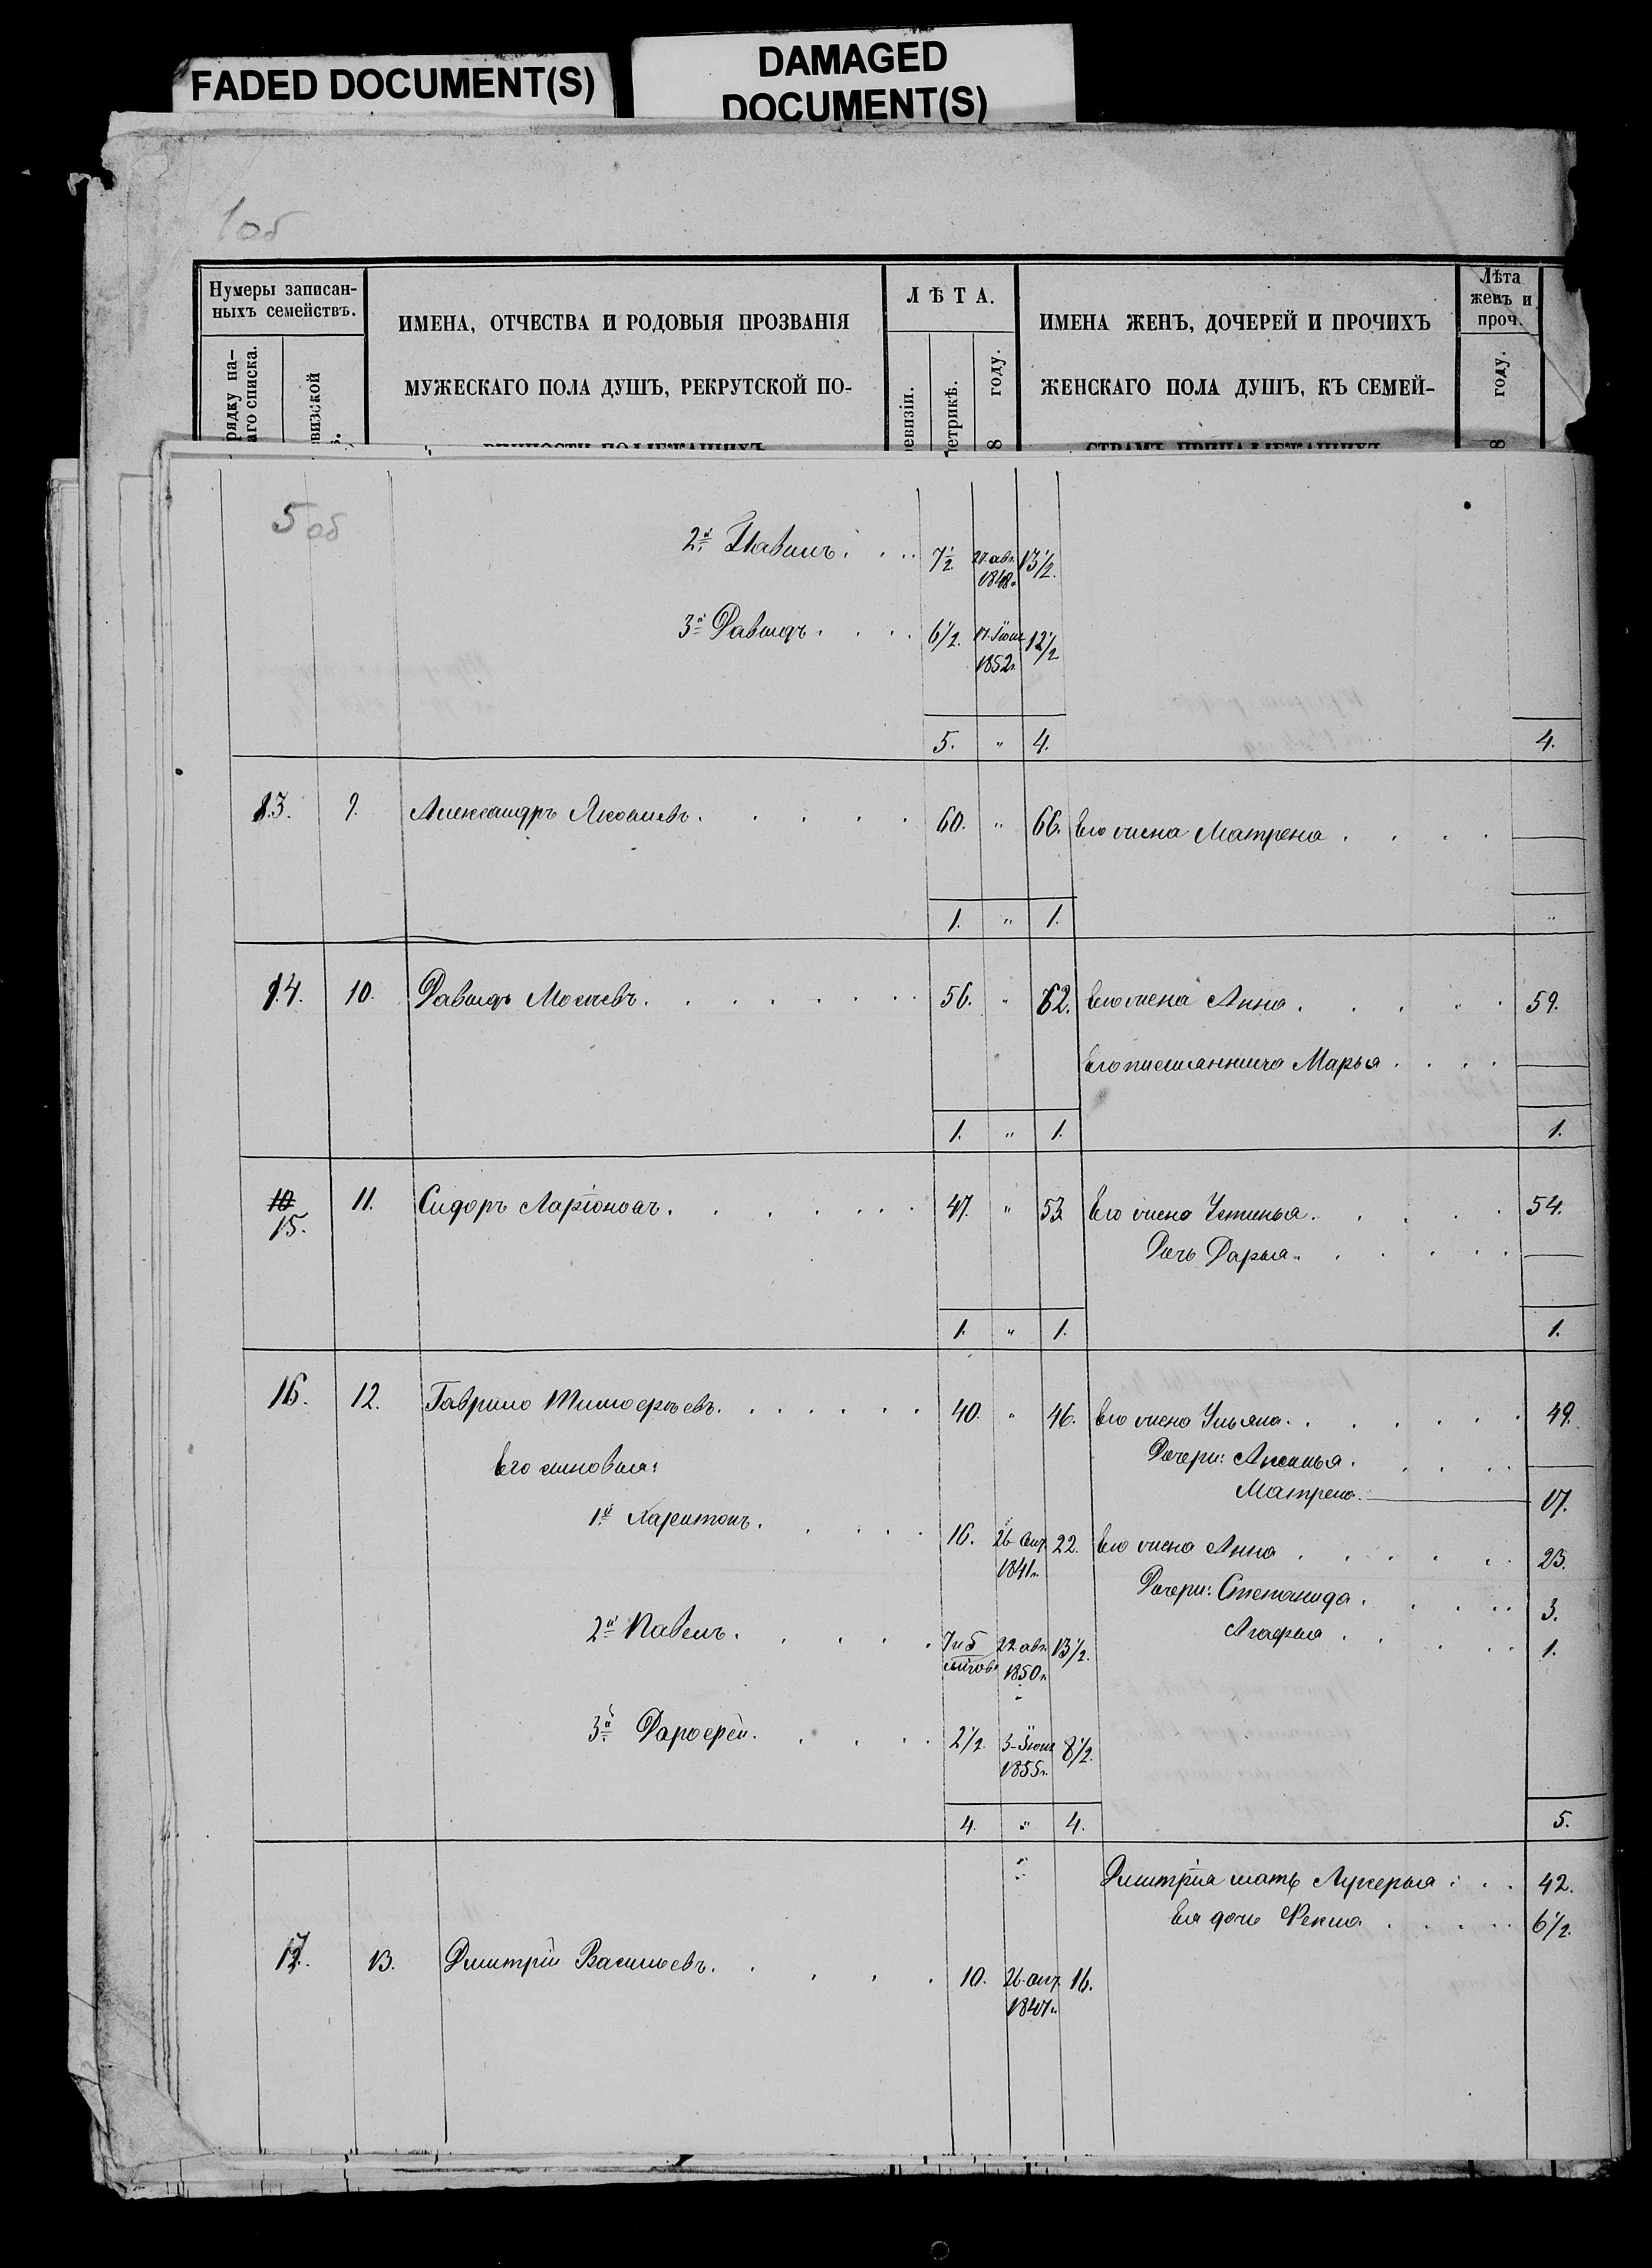 FADED DOCUMENT(S)
DAMAGED
DOCUMENT(S)
1об
Нумеры записан-
ныхъ семействъ.
рядку на-
аго списка.
визской
ИМЕНА, ОТЧЕСТВА И РОДОВЫЯ ПРОЗВАНІЯ
МУЖЕСКАГО ПОЛА ДУШЪ, РЕКРУТСКОЙ ПО-
Л Ѣ Т А.
евизіи.
етрикѣ.
8 году.
ИМЕНА ЖЕНЪ, ДОЧЕРЕЙ И ПРОЧИХЪ
ЖЕНСКАГО ПОЛА ДУШЪ, КЪ СЕМЕЙ-
СТВАМЪ ПРИНАДЛЕЖАЩИХЪ
Лѣта
женъ и
проч.
8 году.
5 об
2й 7½ 27 авг. 13½.
1848г.
3й Давидъ . . . . 6½. 17 Іюня 12½
1852г.
5. " 4. 4.
13. 9. Александръ Яковлевъ . . . . . 60. " 66. Его жена Матрена . . . .
1. " 1. "
14. 10. Давидъ Моисеевъ . . . . . . . 56. " 62. Его жена Анна . . . . . 59.
Его племянница Марья . . . .
1. " 1. 1.
10 11. Сидоръ Ларіоновъ . . . . . . 47. " 53 Его жена Устинья . . . . . 54.
15. Дочь Дарья . . . . . .
1. " 1. 1.
16. 12. Гаврило Тимофеевъ . . . . . . 40. " 46. Его жена Ульяна . . . . . . . 49.
Его сыновья: Дочери: Аксинья . . . . .
Матрена 17.
1й Харитонъ . . . . . 16. 26 Сент. 22. Его жена Анна . . . . . . 23.
1841г. Дочери: Степанида . . . . . 3.
2й Павелъ . . . . . 7 и 5 22 авг. 13½. Агафья . . . . . 1.
1850г.
3й Дорофей . . . . . 2½. 3 Іюня 8½.
1855г.
4. " 4. 5.
Дмитрія мать Лукерья . . . 42.
Ея дочь Фекла . . . . . 6½.
17. 13. Дмитрій Васильевъ . . . . . 10. 26 окт. 16.
1847г.